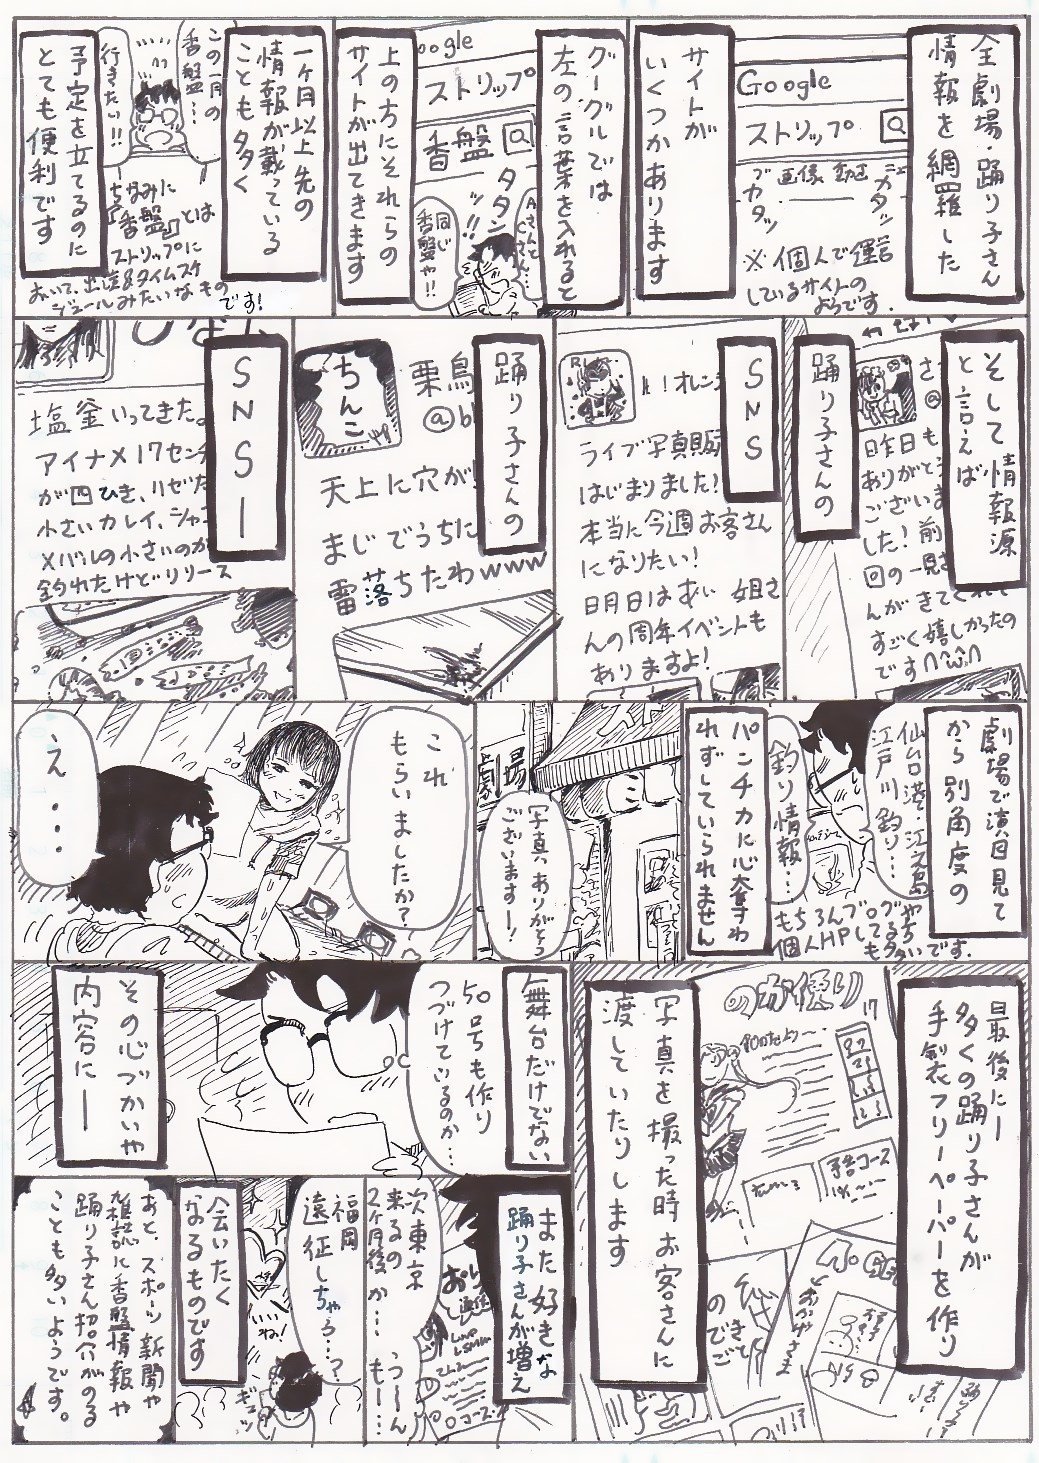 全劇場・踊り子さん
情報を網羅した
Google
ストリップ
画像 動画
カタッ
カタッ
※個人で運営
しているサイトの
ようです.
サイトが
いくつかあります
グーグルでは
左の言葉を入れると
oogle
ストリップ
香盤
タタン
ッ!!
同じ
香盤や!!
上の方にそれらの
サイトが出てきます
一ヶ月以上先の
情報が載っている
ことも多く
この一月の
香盤…
行きたい!!
ちなみに
『香盤』とは
ストリップに
おいて、出演&タイムスケ
ジュールみたいなもの
です!
予定を立てるのに
とても便利です
そして情報源
と言えば
昨日も
ありがとう
ございま
した!前
回の一見さ
んがきてくれて
すごく嬉しかったの
です
踊り子さんの
SNS
k!オレンジ
ライブ写真販
はじまりました!
本当に今週お客さん
になりたい!
日月日はあい 姐さ
んの周年イベントも
ありますよ!
踊り子さんの
ちんこ
栗鳥
@b
天上に穴が
まじでうちに
雷落ちたわwww
SNSー
塩釜いってきた。
アイナメ17センチ
が四ひき、ハゼだ
小さいカレイ、シャコ
メバルの小さいのが
釣れたけどリリース
劇場で演目見て
から別角度の
仙台港・江之島
江戸川釣り…
釣り情報…
もちろんブログや
個人HPしてる方
も多いです.
パンチカに心奪わ
れずしていられません
劇場
写真ありがとう
ございますー!
これ
もらいましたか?
え…
最後にー
多くの踊り子さんが
手製フリーペーパーを作り
のお便り
17
写真を撮った時お客さんに
渡していたりします
のでき
ごと
舞台だけでない
50号も作り
つづけているのか…
その心づかいや
内容にー
また好きな
踊り子さんが増え
次東京
来るの
2ヶ月後
か… うーん
も…
福岡
遠征しちゃう…?
会いたく
なるものです
いいね!
ギュッ
あと、スポーツ新聞や
雑誌に香盤情報や
踊り子さん紹介がのる
ことも多いようです。